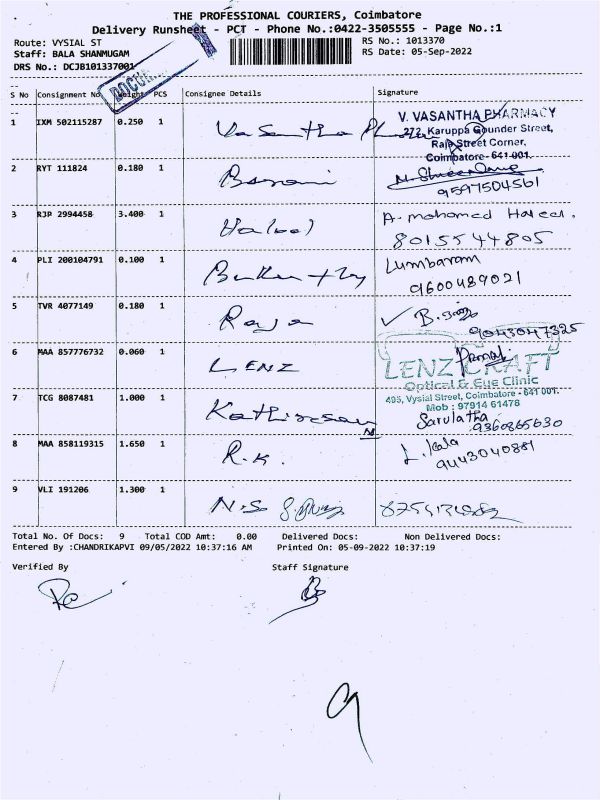 THE PROFESSIONAL COURIERS, Coimbatore
Delivery Runsheet - PCT - Phone No.:0422-3505555 - Page No.:1
Route: VYSIAL ST
RS No.: 1013370
Staff: BALA SHANMUGAM
RS Date: 05-Sep-2022
DRS No.: DCJB101337001
DOCU
S No Consignment No Weight PCS Consignee Details Signature
1 IXM 502115287 0.250 1 Vasantha
V. VASANTHA PHARMACY
272, Karuppa Gounder Street,
Raja Street Corner,
Coimbatore- 641 001.
2 RYT 111824 0.180 1
9597504561
3 RJP 2994458 3.400 1 A. mohamed Haleel.
8015544805
4 PLI 200104791 0.100 1 Lumbaram
9600489021
5 TVR 4077149 0.180 1 Raja
9043047325
6 MAA 857776732 0.060 1 LENZ
LENZ CRAFT
Optical & Eye Clinic
495, Vysial Street, Coimbatore - 641 001.
Mob : 97914 61478
7 TCG 8087481 1.000 1 Sarulatha
9360865630
8 MAA 858119315 1.650 1 R.K. L. kala
9443040881
9 VLI 191206 1.300 1 N.S
Total No. Of Docs: 9 Total COD Amt: 0.00 Delivered Docs: Non Delivered Docs:
Entered By :CHANDRIKAPVI 09/05/2022 10:37:16 AM Printed On: 05-09-2022 10:37:19
Verified By Staff Signature
9